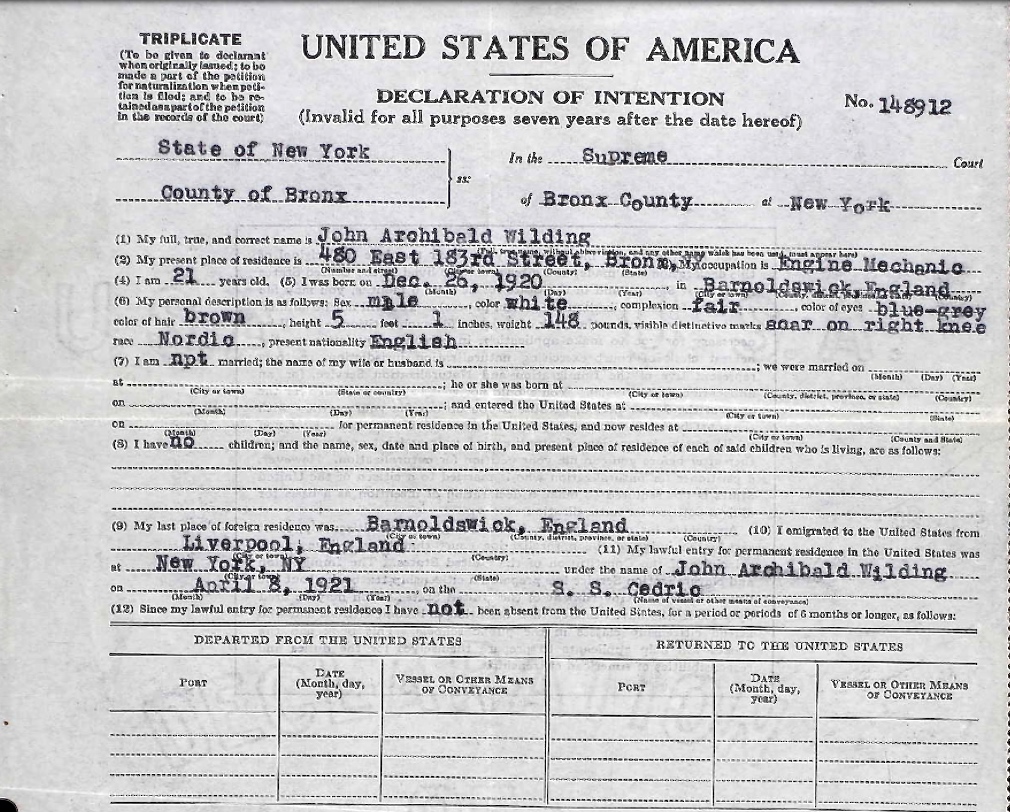 TRIPLICATE
(To be given to declarant
when originally issued; to be
made a part of the petition
for naturalization when peti-
tion is filed; and to be re-
tained as a part of the petition
in the records of the court)
UNITED STATES OF AMERICA
DECLARATION OF INTENTION
(Invalid for all purposes seven years after the date hereof)
No. 148912
State of New York
County of Bronx
ss:
In the Supreme Court
of Bronx County at New York
(1) My full, true, and correct name is John Archibald Wilding
(2) My present place of residence is 480 East 183rd Street, Bronx, My occupation is Engine Mechanic
(Number and street) (City or town) (County) (State)
(4) I am 21 years old. (5) I was born on Dec. 26, 1920 in Barnoldswick, England
(Month) (Day) (Year) (City or town) (County, district, province, or state) (Country)
(6) My personal description is as follows: Sex male, color white, complexion fair, color of eyes blue-grey
color of hair brown, height 5 feet 1 inches, weight 148 pounds, visible distinctive marks scar on right knee
race Nordic, present nationality English
(7) I am not married; the name of my wife or husband is ; we were married on
(Month) (Day) (Year)
at ; he or she was born at
(City or town) (State or country) (City or town) (County, district, province, or state) (Country)
on ; and entered the United States at
(Month) (Day) (Year) (City or town) (State)
on for permanent residence in the United States, and now resides at
(Month) (Day) (Year) (City or town) (County and State)
(8) I have no children; and the name, sex, date and place of birth, and present place of residence of each of said children who is living, are as follows:
(9) My last place of foreign residence was Barnoldswick, England (10) I emigrated to the United States from
(City or town) (County, district, province, or state) (Country)
Liverpool, England (11) My lawful entry for permanent residence in the United States was
(City or town) (Country)
at New York, NY under the name of John Archibald Wilding
(City or town) (State)
on April 8, 1921 on the S. S. Cedric
(Month) (Day) (Year) (Name of vessel or other means of conveyance)
(12) Since my lawful entry for permanent residence I have not been absent from the United States, for a period or periods of 6 months or longer, as follows:
DEPARTED FROM THE UNITED STATES RETURNED TO THE UNITED STATES
PORT DATE (Month, day, year) VESSEL OR OTHER MEANS OF CONVEYANCE PORT DATE (Month, day, year) VESSEL OR OTHER MEANS OF CONVEYANCE